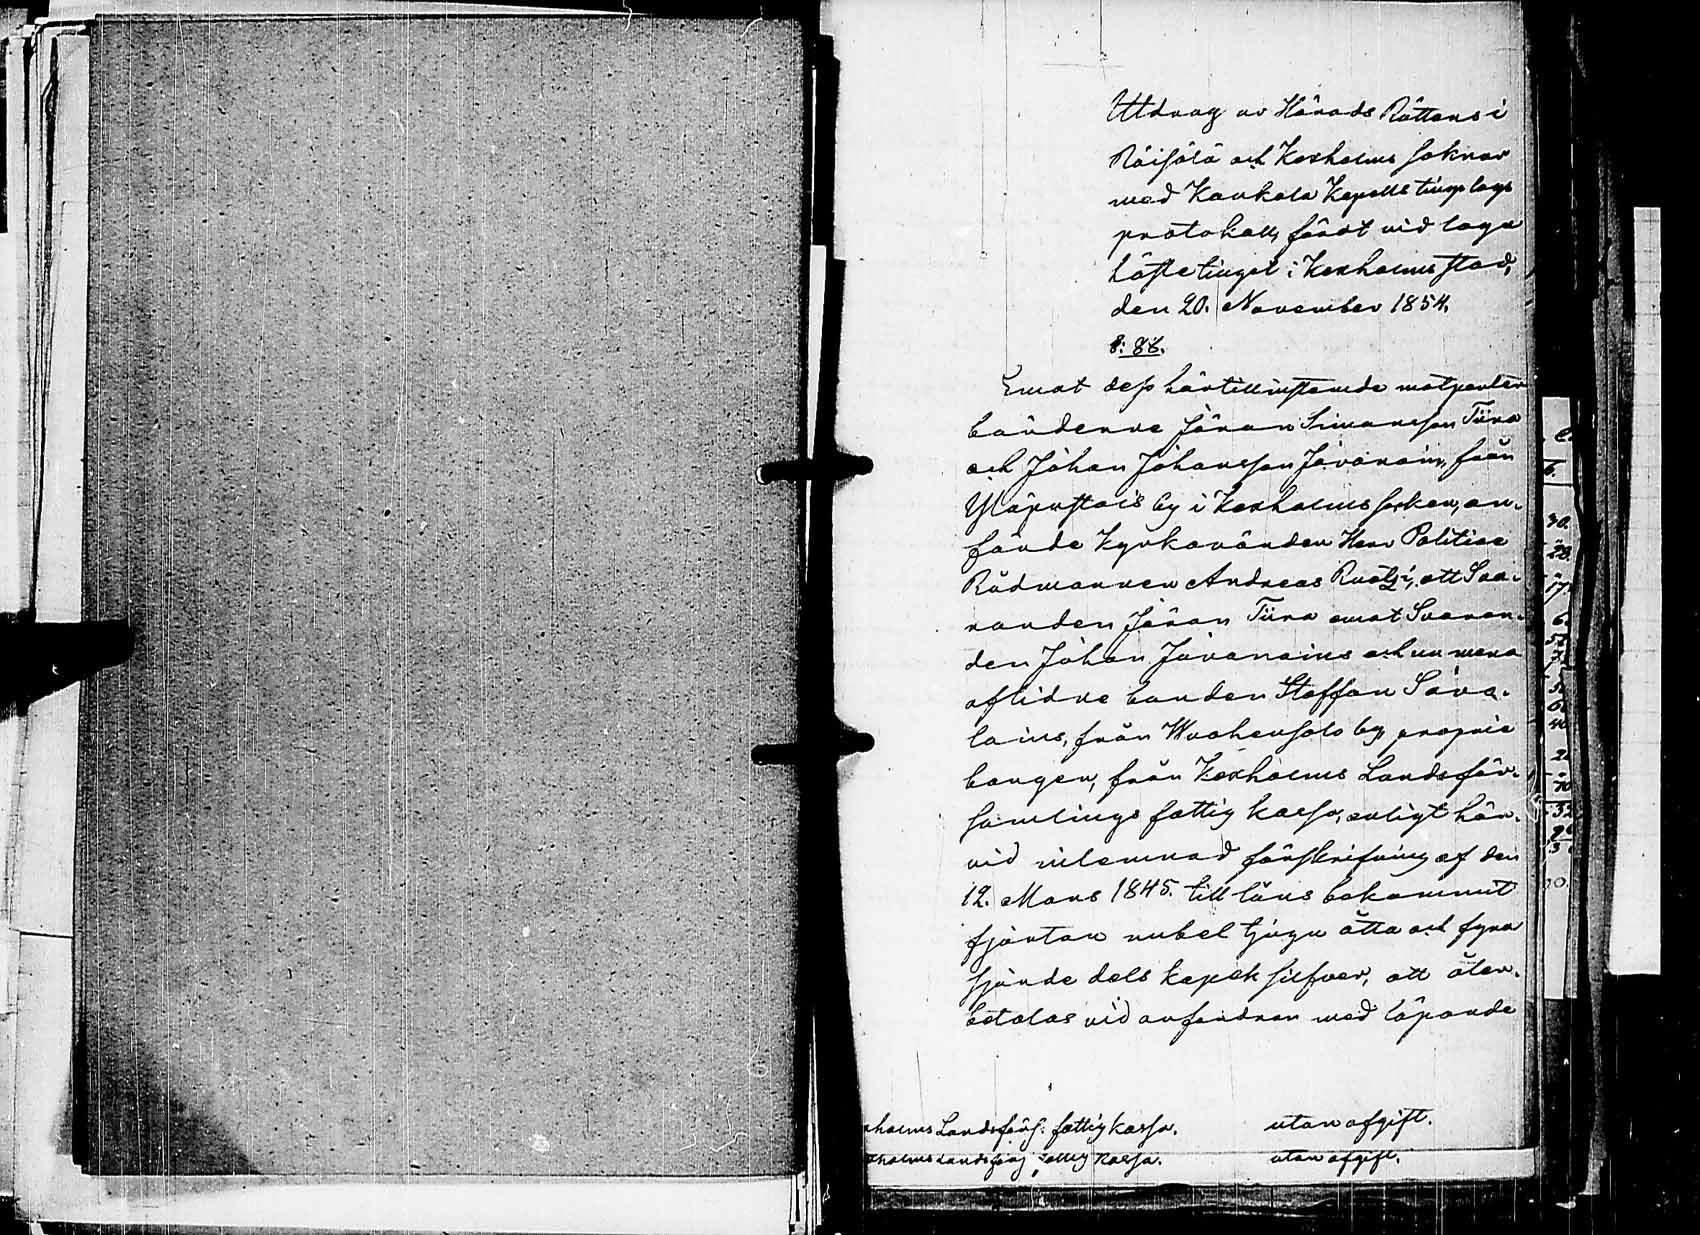 Utdrag av Härads Rättens i
Räisälä och Kexholms soknar
med Kaukola Kapells tings lags
protokoll, fördt vid laga
höste tinget i Kexholms stad,
den 20. November 1854.
§: 86.
Emot dess härtill instämde motparter
bönderne Jöran Simonsson Tiira
och Johan Johansson Javanain, från
Yläpustois by i Kexholms socken, an-
förde Kyrkovärden Herr Politiae
Rådmannen Andreas Ruotzi, att Sva-
randen Jöran Tiira emot Svaran-
den Johan Javanains och nu mera
aflidne bonden Staffan Sava-
lains, från Wuohensalo by, proprie
borgen, från Kexholms Landsför-
samlings fattig kassa, enligt här-
vid inlemnad förskrifning af den
12. Mars 1845. till låns bekommit
fjorton rubel tjugu åtta och fyra
sjunde dels kopek silfver, att åter-
betalas vid anfordran med löpande
xholms Landsförs: fattig kassa. utan afgift.
xholms Landsförs fattig kassa. utan afgift.